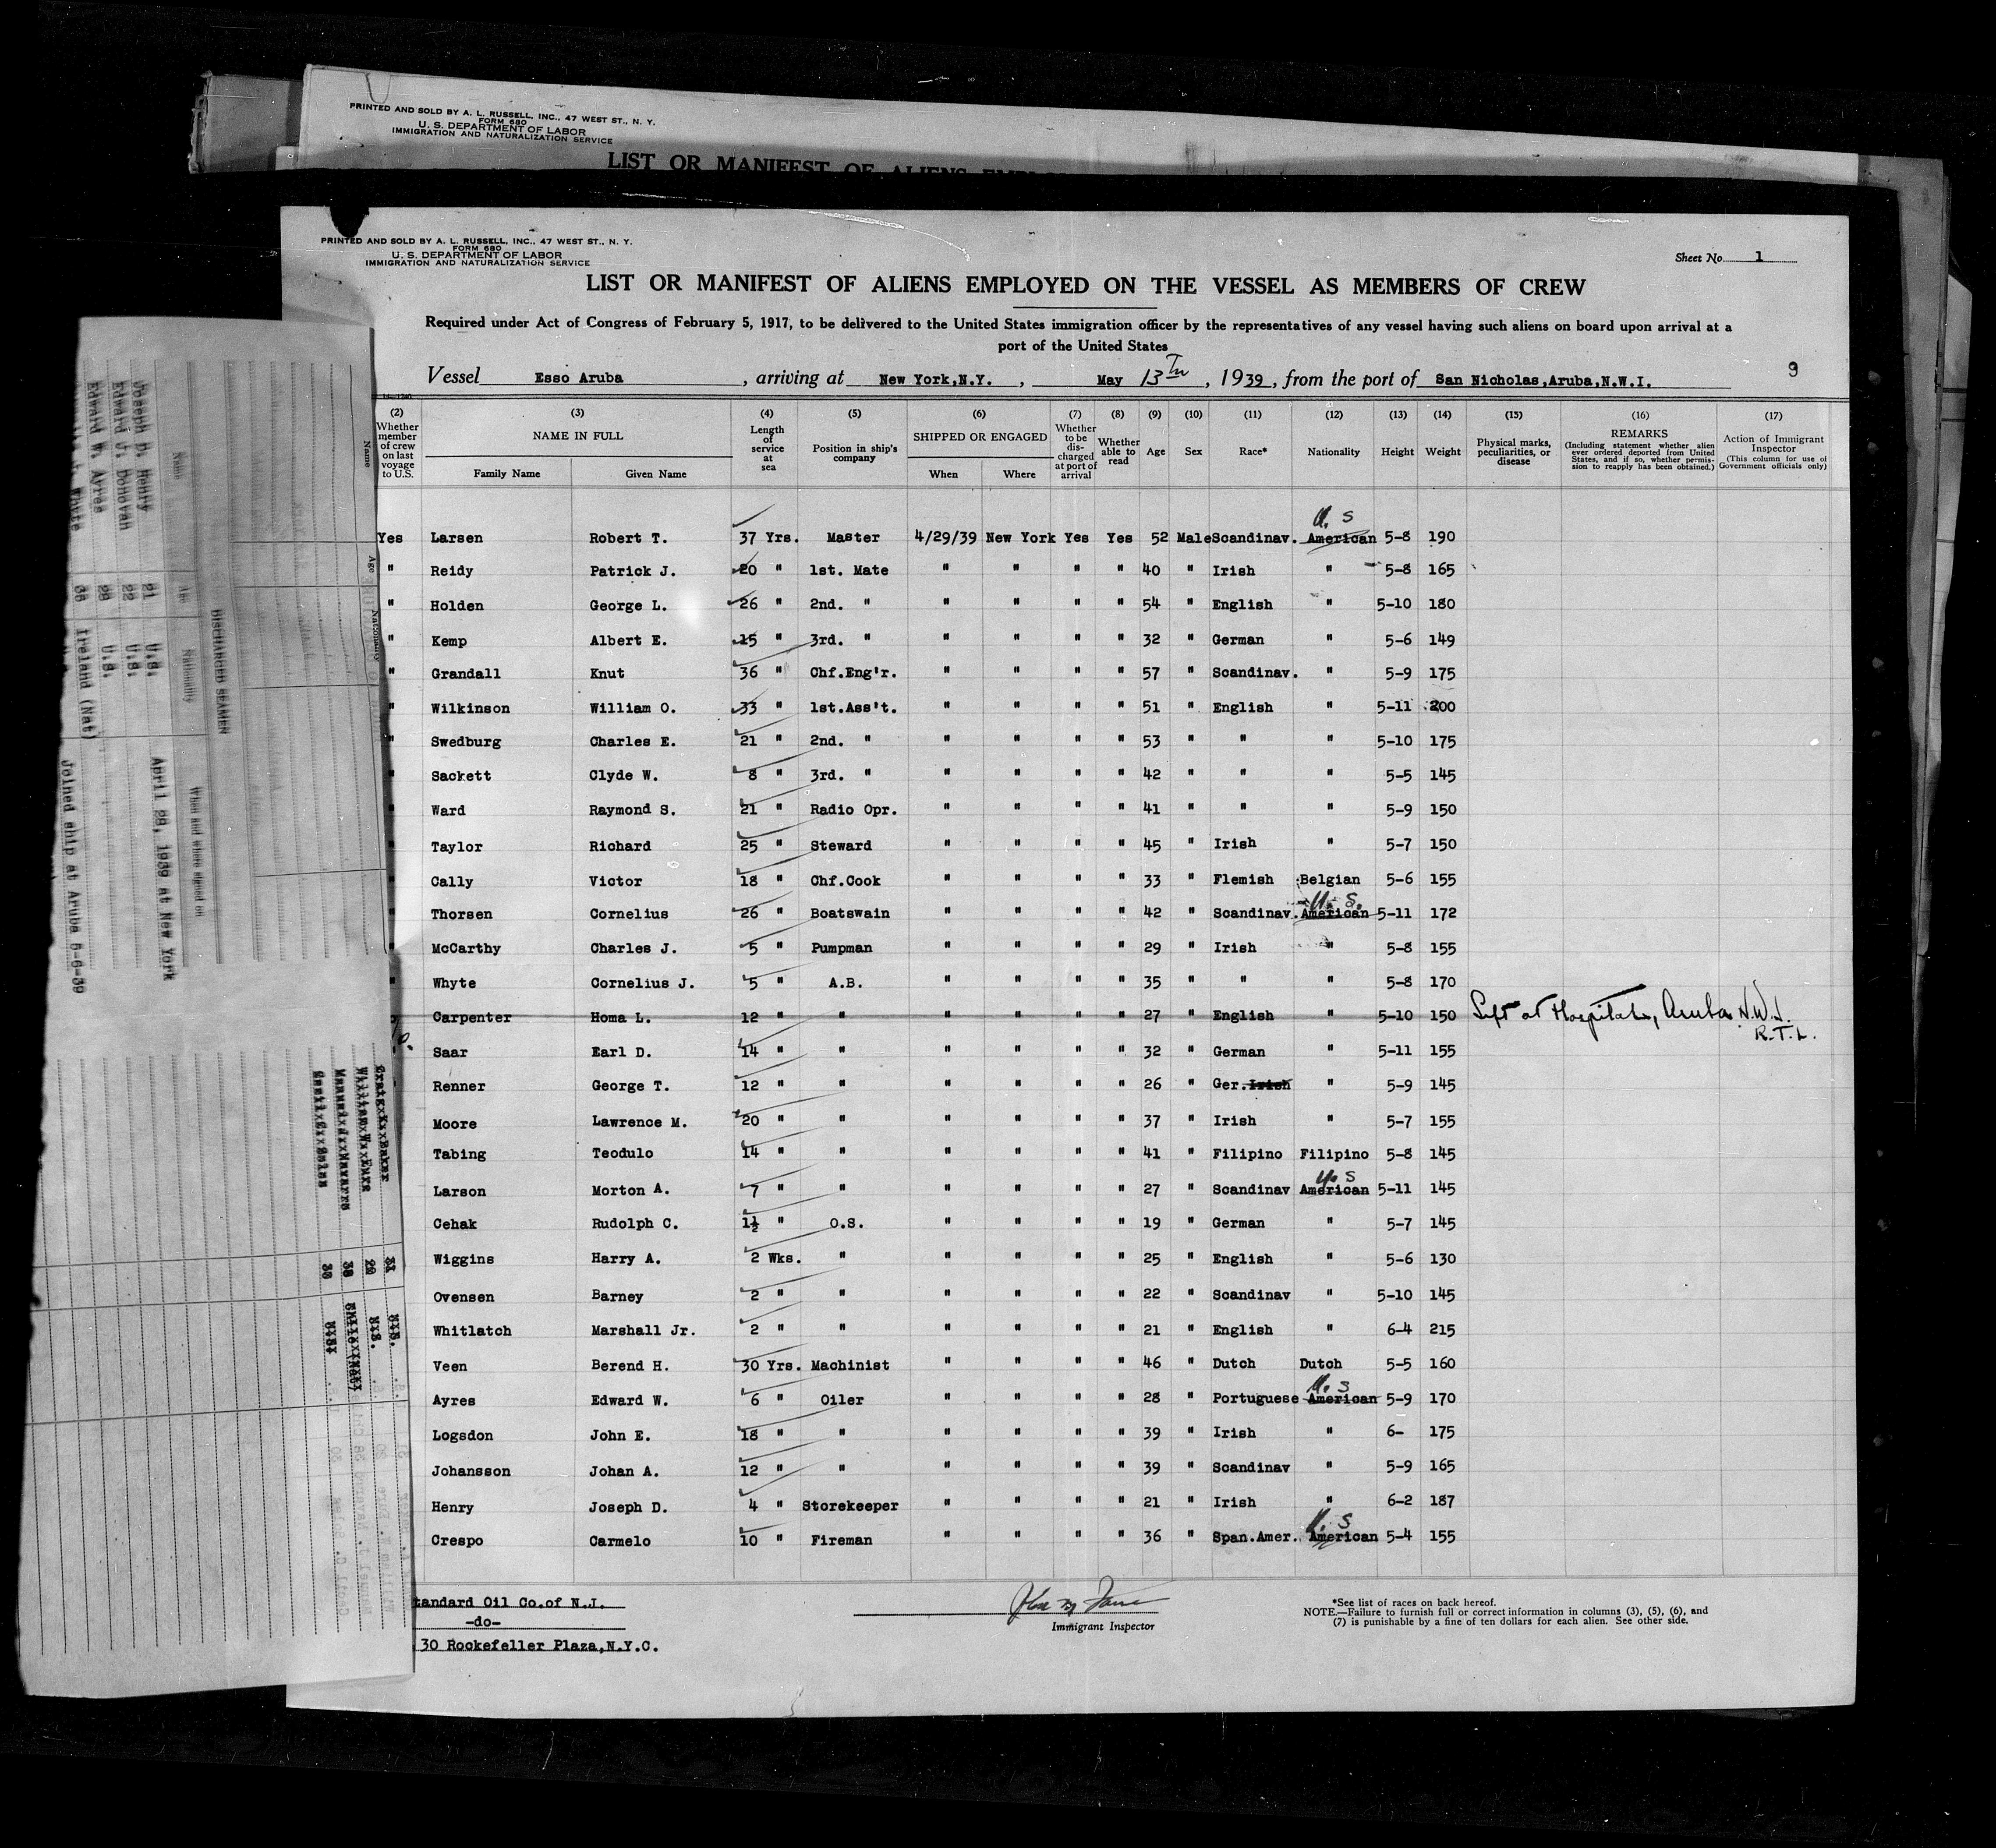 PRINTED AND SOLD BY A. L. RUSSELL, INC., 47 WEST ST., N. Y.
FORM 680
U. S. DEPARTMENT OF LABOR
IMMIGRATION AND NATURALIZATION SERVICE
LIST OR MANIFEST OF ALIENS
PRINTED AND SOLD BY A. L. RUSSELL, INC., 47 WEST ST., N. Y.
FORM 680
U. S. DEPARTMENT OF LABOR
IMMIGRATION AND NATURALIZATION SERVICE
Sheet No. 1
LIST OR MANIFEST OF ALIENS EMPLOYED ON THE VESSEL AS MEMBERS OF CREW
Required under Act of Congress of February 5, 1917, to be delivered to the United States immigration officer by the representatives of any vessel having such aliens on board upon arrival at a
port of the United States
Vessel Esso Aruba, arriving at New York,N.Y., May 13Th, 1939, from the port of San Nicholas,Aruba,N.W.I. 9
(2) (3) (4) (5) (6) (7) (8) (9) (10) (11) (12) (13) (14) (15) (16) (17)
Whether member of crew on last voyage to U.S. NAME IN FULL Family Name Given Name Length of service at sea Position in ship's company SHIPPED OR ENGAGED When Where Whether to be discharged at port of arrival Whether able to read Age Sex Race* Nationality Height Weight Physical marks, peculiarities, or disease REMARKS (Including statement whether alien ever ordered deported from United States, and if so, whether permission to reapply has been obtained.) Action of Immigrant Inspector (This column for use of Government officials only)
U. S
Yes Larsen Robert T. 37 Yrs. Master 4/29/39 New York Yes Yes 52 Male Scandinav. American 5-8 190
" Reidy Patrick J. 20 " 1st. Mate " " " " 40 " Irish " 5-8 165
" Holden George L. 26 " 2nd. " " " " " 54 " English " 5-10 180
" Kemp Albert E. 15 " 3rd. " " " " " 32 " German " 5-6 149
" Grandall Knut 36 " Chf.Eng'r. " " " " 57 " Scandinav. " 5-9 175
" Wilkinson William O. 33 " 1st.Ass't. " " " " 51 " English " 5-11 200
" Swedburg Charles E. 21 " 2nd. " " " " " 53 " " " 5-10 175
" Sackett Clyde W. 8 " 3rd. " " " " " 42 " " " 5-5 145
" Ward Raymond S. 21 " Radio Opr. " " " " 41 " " " 5-9 150
" Taylor Richard 25 " Steward " " " " 45 " Irish " 5-7 150
" Cally Victor 18 " Chf.Cook " " " " 33 " Flemish Belgian 5-6 155
U. S.
" Thorsen Cornelius 26 " Boatswain " " " " 42 " Scandinav. American 5-11 172
" McCarthy Charles J. 5 " Pumpman " " " " 29 " Irish " 5-8 155
" Whyte Cornelius J. 5 " A.B. " " " " 35 " " " 5-8 170
Carpenter Homa L. 12 " " " " " " 27 " English " 5-10 150 Left at Hospital, Aruba N.W.I.
R.T.L.
Saar Earl D. 14 " " " " " " 32 " German " 5-11 155
Renner George T. 12 " " " " " " 26 " Ger. Irish " 5-9 145
Moore Lawrence M. 20 " " " " " " 37 " Irish " 5-7 155
Tabing Teodulo 14 " " " " " " 41 " Filipino Filipino 5-8 145
U. S
Larson Morton A. 7 " " " " " " 27 " Scandinav American 5-11 145
Cehak Rudolph C. 1½ " O.S. " " " " 19 " German " 5-7 145
Wiggins Harry A. 2 Wks. " " " " " 25 " English " 5-6 130
Ovensen Barney 2 " " " " " " 22 " Scandinav " 5-10 145
Whitlatch Marshall Jr. 2 " " " " " " 21 " English " 6-4 215
Veen Berend H. 30 Yrs. Machinist " " " " 46 " Dutch Dutch 5-5 160
U. S
Ayres Edward W. 6 " Oiler " " " " 28 " Portuguese American 5-9 170
Logsdon John E. 18 " " " " " " 39 " Irish " 6- 175
Johansson Johan A. 12 " " " " " " 39 " Scandinav " 5-9 165
Henry Joseph D. 4 " Storekeeper " " " " 21 " Irish " 6-2 187
U. S
Crespo Carmelo 10 " Fireman " " " " 36 " Span.Amer. American 5-4 155
tandard Oil Co.of N.J.
-do-
30 Rockefeller Plaza,N.Y.C.
Immigrant Inspector
*See list of races on back hereof.
NOTE.—Failure to furnish full or correct information in columns (3), (5), (6), and
(7) is punishable by a fine of ten dollars for each alien. See other side.
DISCHARGED SEAMEN
Name Age Nationality When and where signed on
Joseph D. Henry 21 U.S. April 29, 1939 at New York
Edward J. Donovan 22 U.S.
Edward W. Ayres 28 U.S.
Whyte 35 Ireland (Nat) Joined ship at Aruba 5-6-39